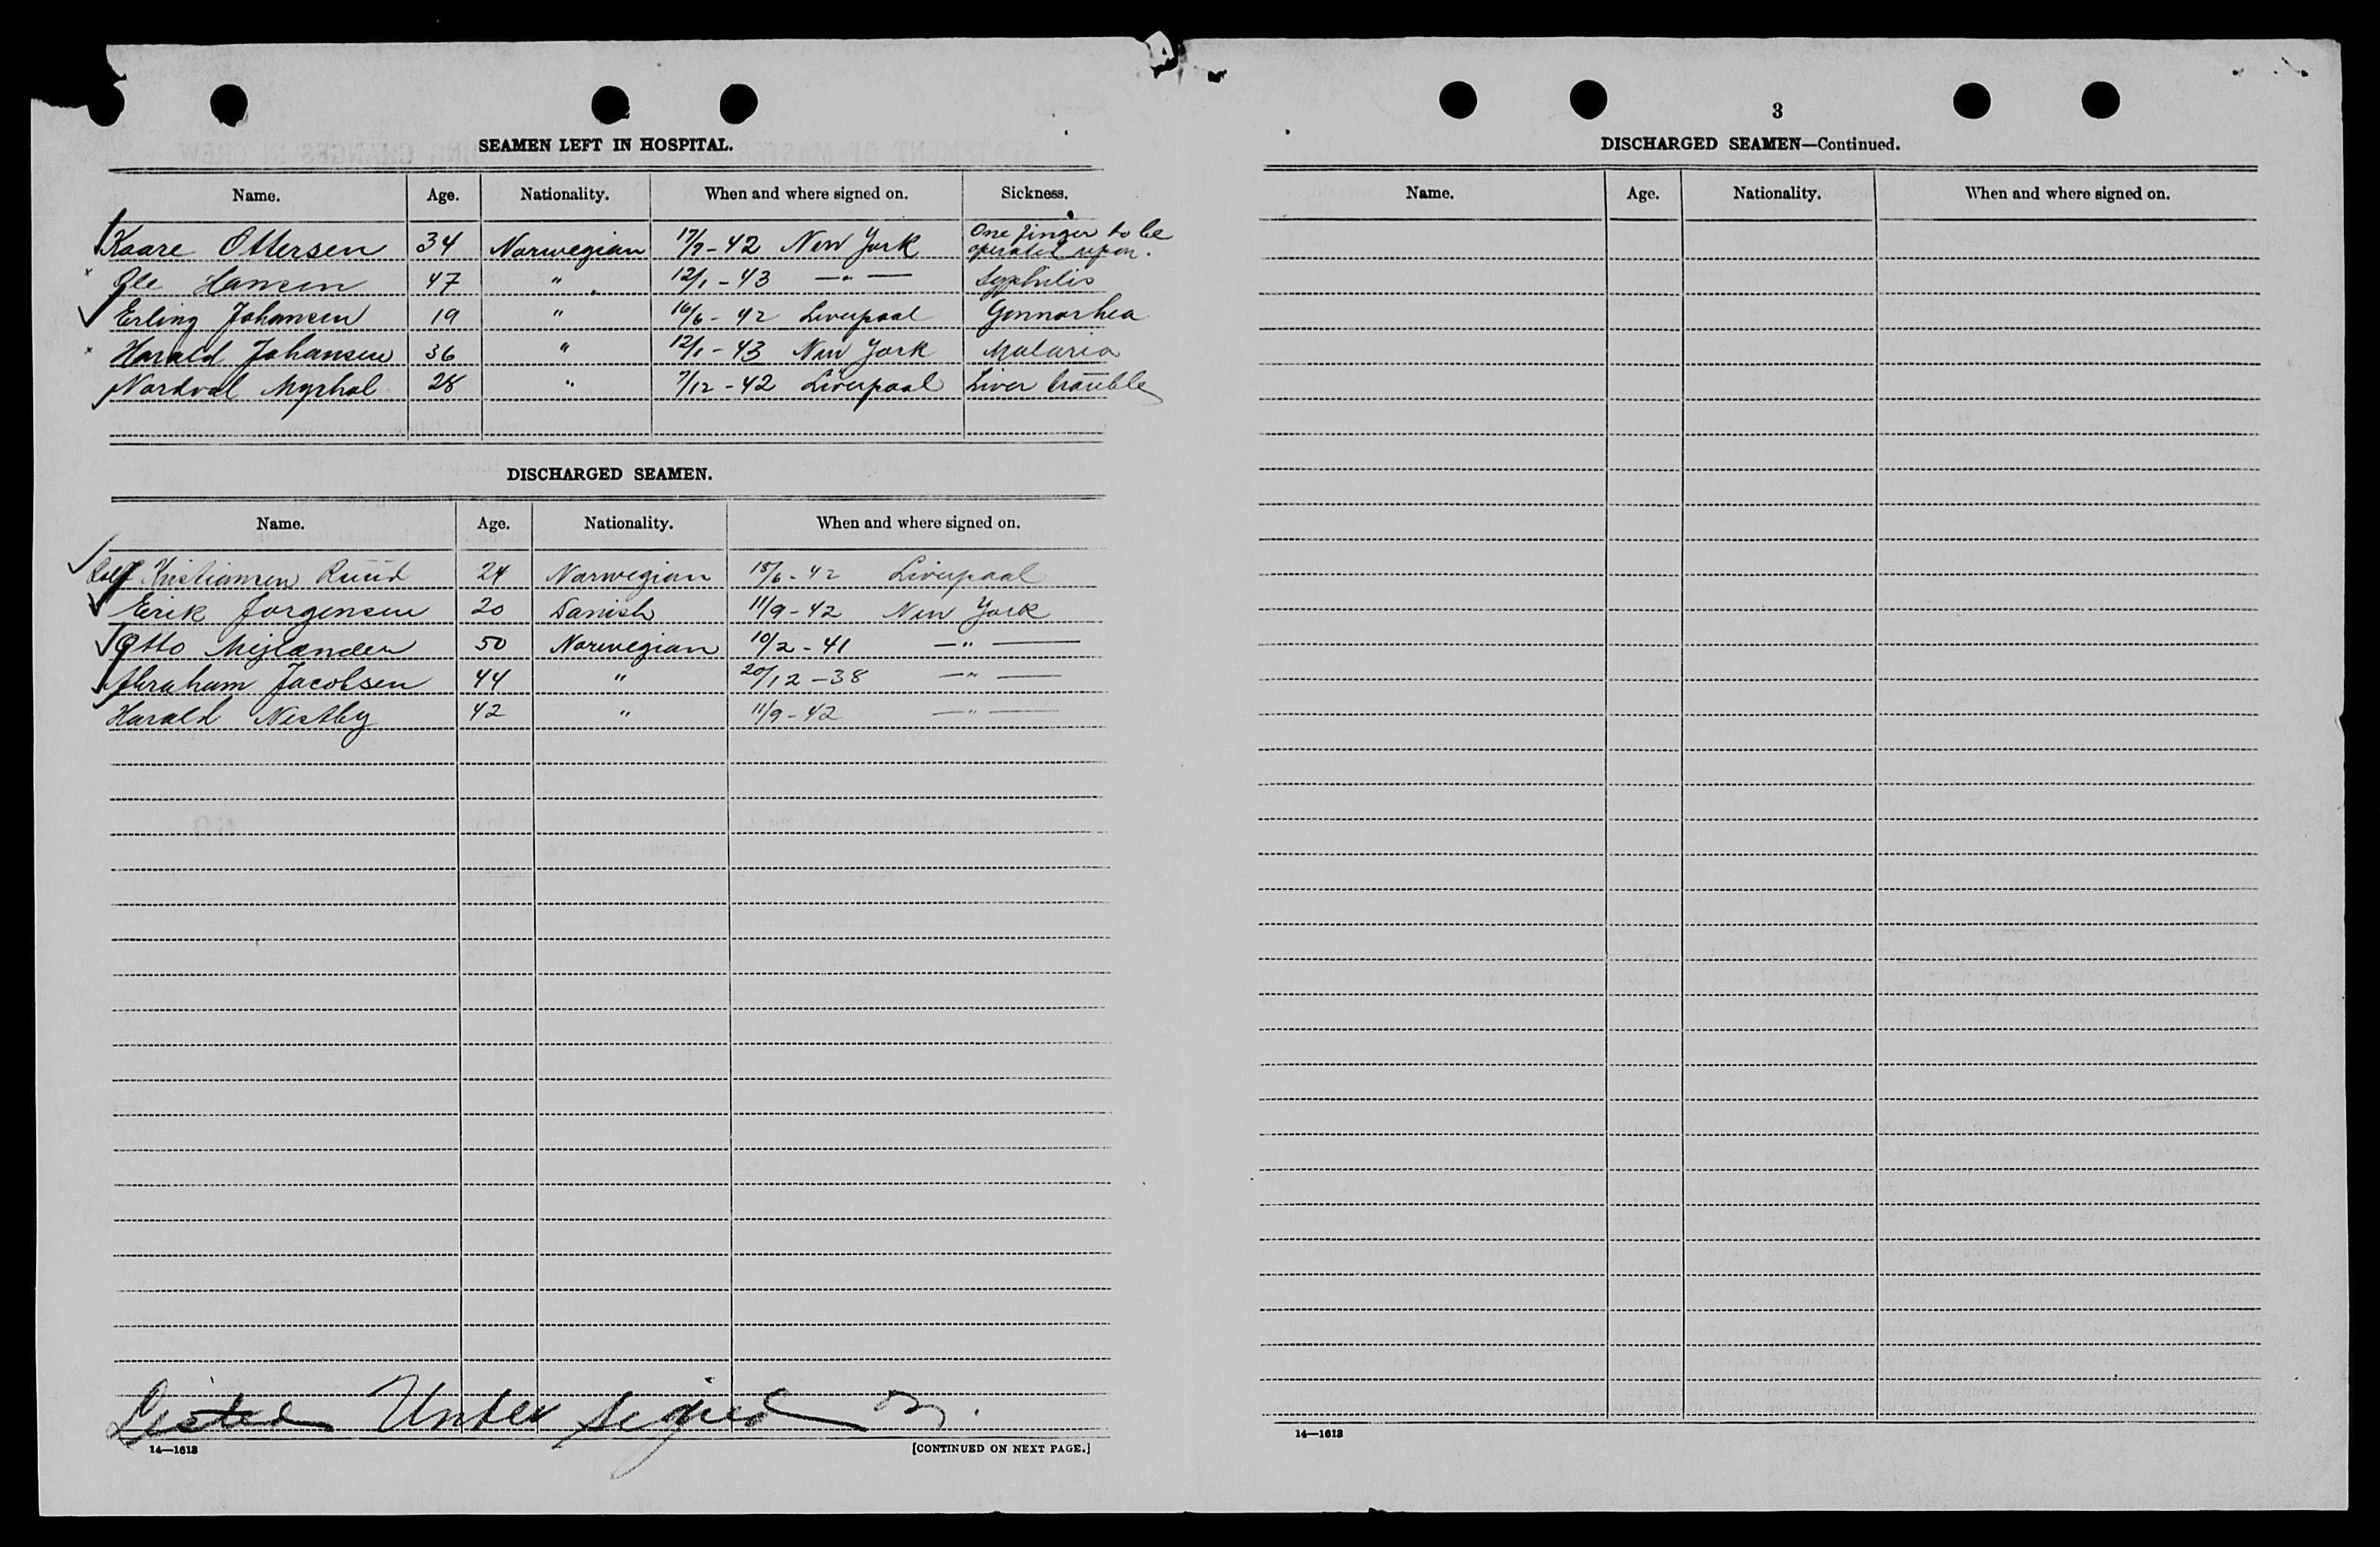 SEAMEN LEFT IN HOSPITAL.
Name. Age. Nationality. When and where signed on. Sickness.
Kaare Ottersen 34 Norwegian 17/7-42 New York One finger to be operated upon.
Ole Hansen 47 " 12/1-43 —"— Syphilis
Erling Johansen 19 " 16/6-42 Liverpool Gonnorhea
Harald Johansen 36 " 12/1-43 New York Malaria
Nordval Myrhol 28 " 7/12-42 Liverpool Liver trouble
DISCHARGED SEAMEN.
Name. Age. Nationality. When and where signed on.
Rolf Kristiansen Ruud 24 Norwegian 18/6-42 Liverpool
Erik Jorgensen 20 Danish 11/9-42 New York
Otto Mejlænder 50 Norwegian 10/2-41 —"—
Abraham Jacobsen 44 " 20/12-38 —"—
Harald Nestby 42 " 11/9-42 —"—
Listed Under signed on.
14—1613 [CONTINUED ON NEXT PAGE.]
3
DISCHARGED SEAMEN—Continued.
Name. Age. Nationality. When and where signed on.
14—1613